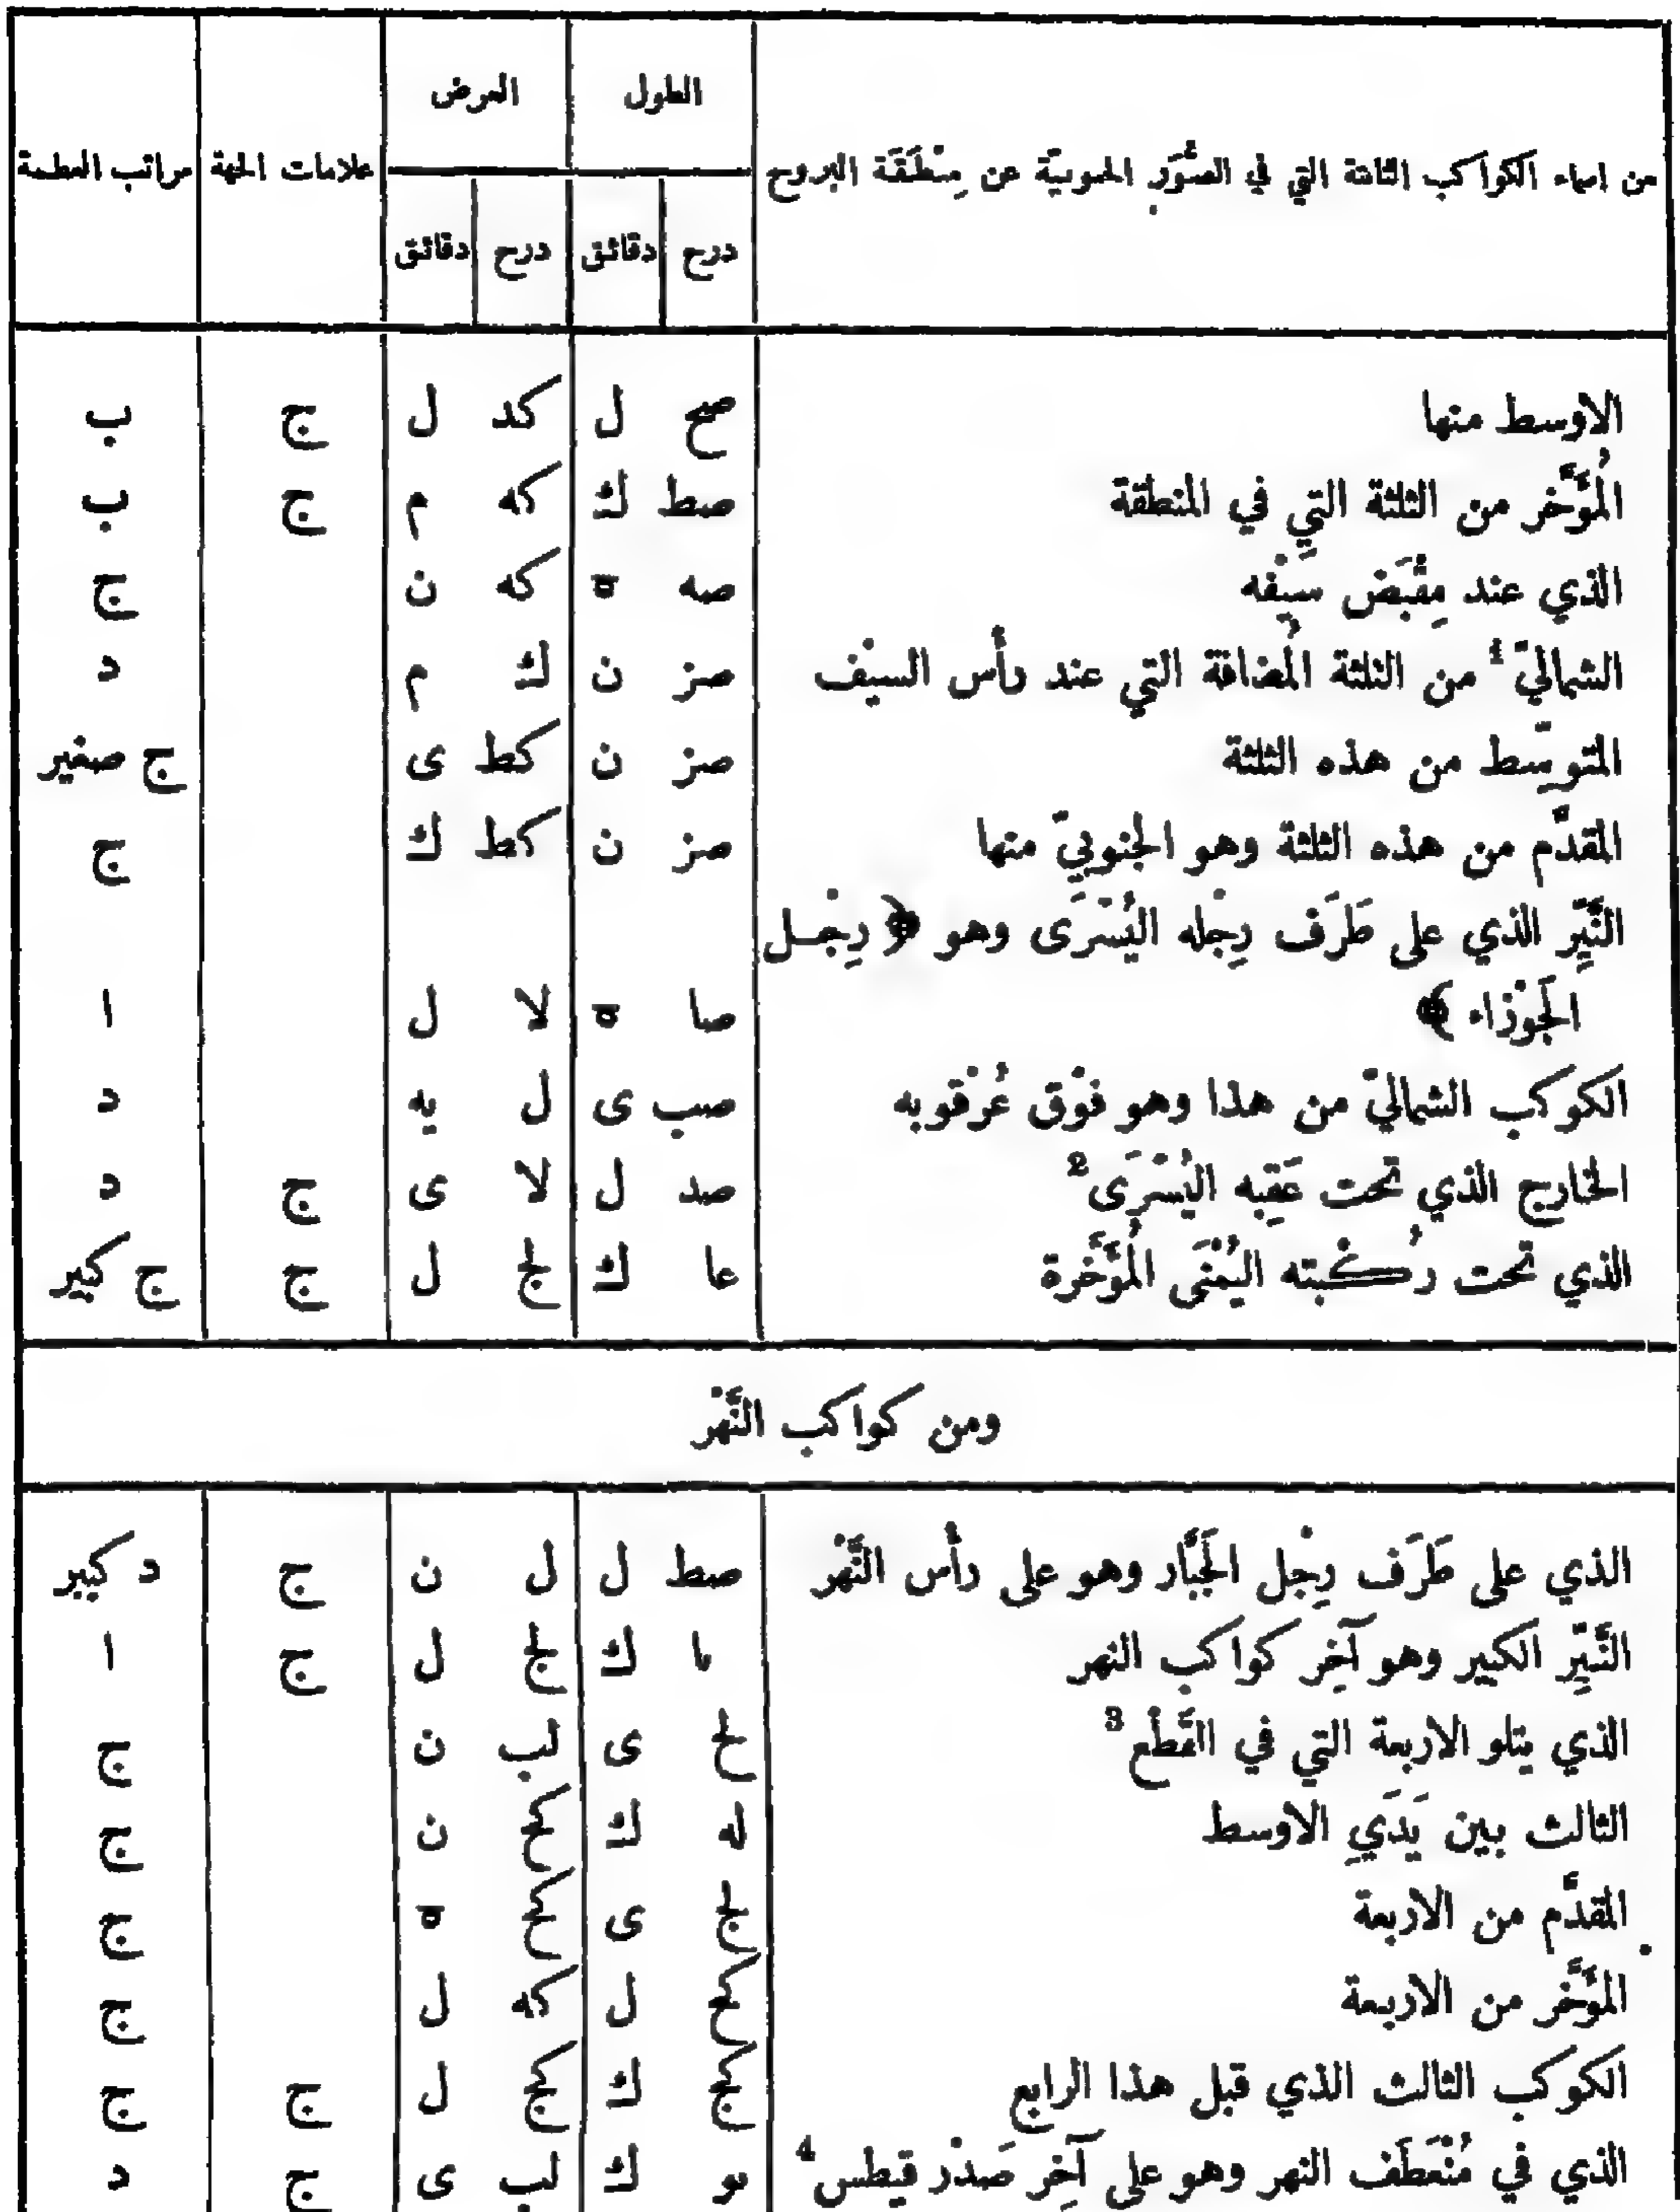 من اسماء الكواكب الثابتة التي في الصُّوَر الجنوبيّة عن مِنْطَقَة البروج الطول العرض علامات الجهة مراتب العظمة
درج دقائق درج دقائق
الاوسط منها صح ل كد ل ج ب
المُؤَّخر من الثلثة التي في المنطقة صط ك كه م ج ب
الذي عند مِقْبَض سَيْفه صه ه كه ن ج
الشماليّ 1 من الثلثة المُضافة التي عند رأس السيْف صز ن ك م د
المتوسّط من هذه الثلثة صز ن كط ى ج صغير
المقدَّم من هذه الثلثة وهو الجنوبيّ منها صز ن كط ك ج
النَّيِّر الذي على طَرَف رِجله اليُسْرَى وهو ﴿ رِجْـل
الجَوْزاء ﴾ صا ه لا ل ا
الكوكب الشماليّ من هذا وهو فوْق عُرْقوبه صب ى ل يه د
الخارج الذي تحت عَقِبه اليُسْرَى 2 صد ل لا ى ج د
الذي تحت رُكْبته اليُمْنَى المُؤَّخرة عا ك لج ل ج ج كبير
ومن كواكب النَّهْر
الذي على طَرَف رِجْل الجَبَّار وهو على رأس النَّهْر صط ل ل ن ج د كبير
النَّيِّر الكبير وهو آخِر كواكب النهر ك لج ل ج ا
الذي يتلو الاربعة التي في القَطْع 3 لح ى لب ن ج
الثالث بين يَدَيِ الاوسط له ك كح ن ج
المقدَّم من الاربعة لج ى كح ه ج
المؤَّخر من الاربعة كح ل كه ل ج
الكوكب الثالث الذي قبل هذا الرابع كج ك كج ل ج ج
الذي في مُنْعطَف النهر وهو على آخِر صَدْر قيطس 4 ك لب ى ج د